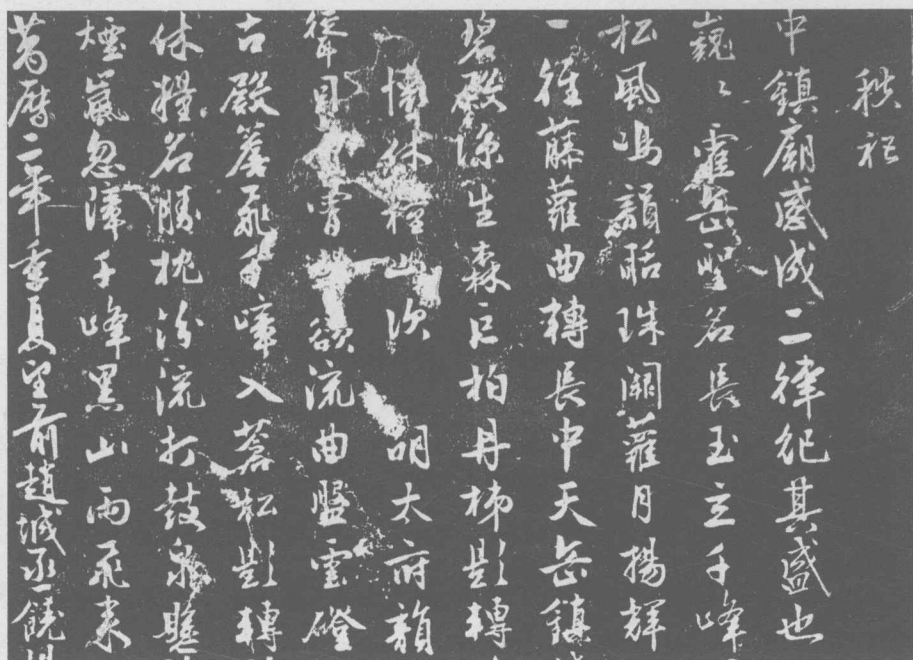 秩祀
中鎮廟感成二律紀其盛也
巍〻霍岳聖名長玉立千峰
松風鳴韻聒珠闕蘿月揚輝
一徑藤蘿曲轉長中天岳鎮
碧殿除生森巨柏丹梯影轉
休糧山次 明太府韻
欲流曲盤雲磴
古殿 飛千嶂入蒼松影轉
休糧名勝枕汾流打鼓泉
煙嵐忽障千峰黑山雨飛來
萬曆二年季夏望前趙城丞饒